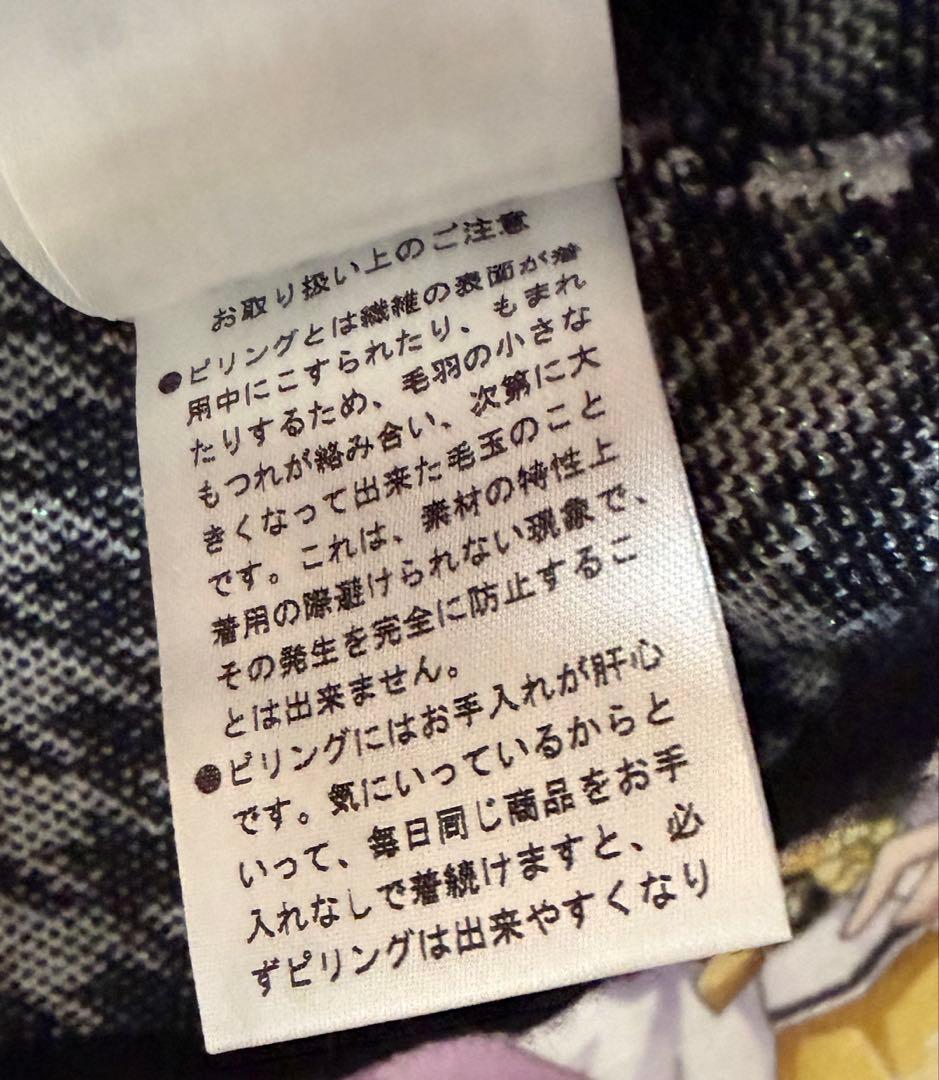 お取り扱い上のご注意
●ピリングとは繊維の表面が着
用中にこすられたり、もまれ
たりするため、毛羽の小さな
もつれが絡み合い、次第に大
きくなって出来た毛玉のこと
です。これは、素材の特性上
着用の際避けられない現象で、
その発生を完全に防止するこ
とは出来ません。
●ピリングにはお手入れが肝心
です。気にいっているからと
いって、毎日同じ商品をお手
入れなしで着続けますと、必
ずピリングは出来やすくなり